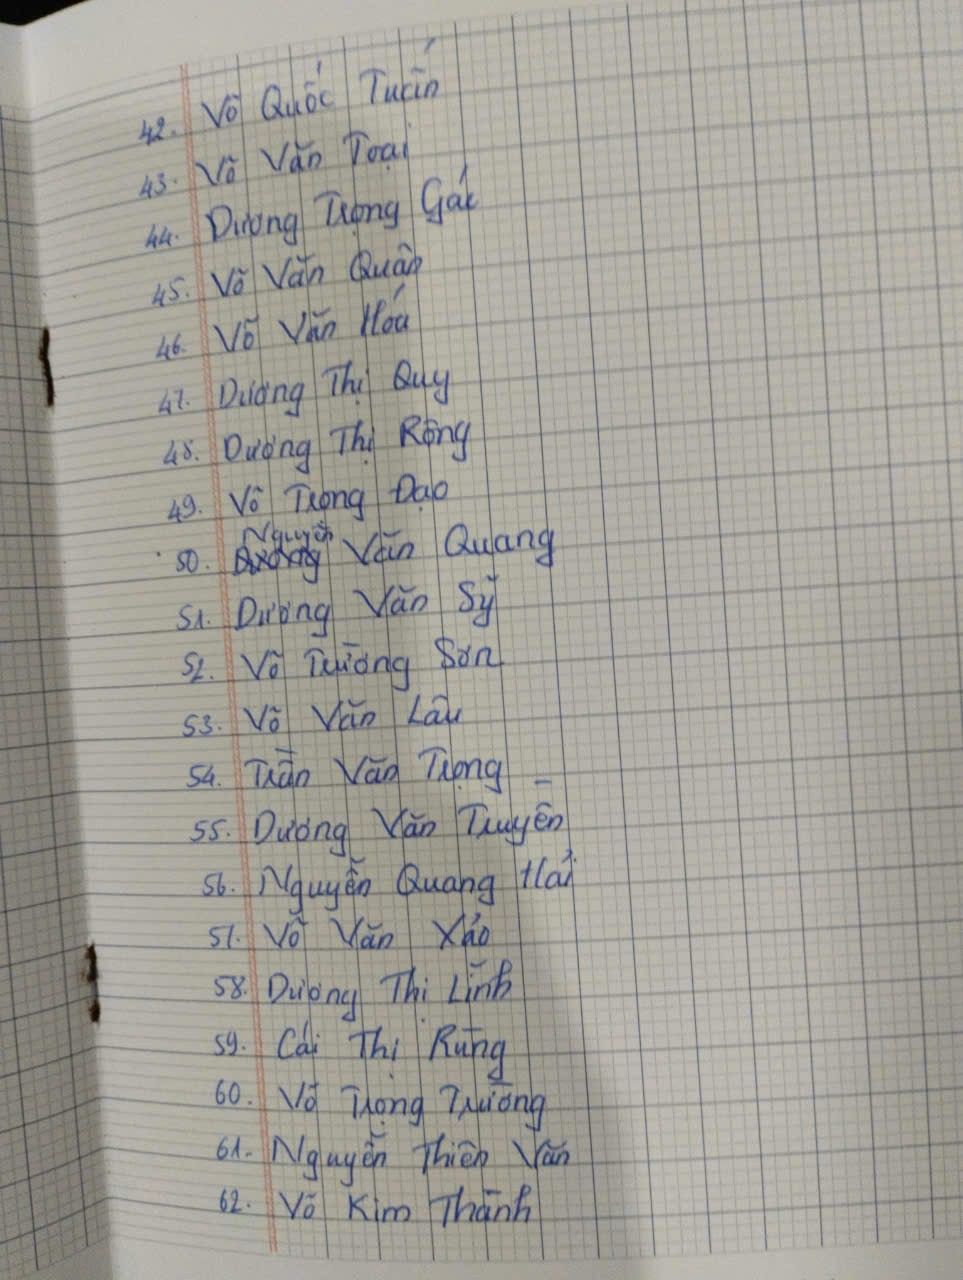 42. Võ Quốc Tuấn
43. Võ Văn Toại
44. Dương Trọng Gác
45. Võ Văn Quân
46. Võ Văn Hóa
47. Dương Thị Quy
48. Dương Thị Rộng
49. Võ Trọng Đạo
50. Nguyễn Văn Quang
51. Dương Văn Sỹ
52. Võ Trường Sơn
53. Võ Văn Lâu
54. Trần Văn Trọng
55. Dương Văn Truyền
56. Nguyễn Quang Hải
57. Võ Văn Xảo
58. Dương Thị Lĩnh
59. Cái Thị Rừng
60. Võ Trọng Trường
61. Nguyễn Thiên Văn
62. Võ Kim Thành